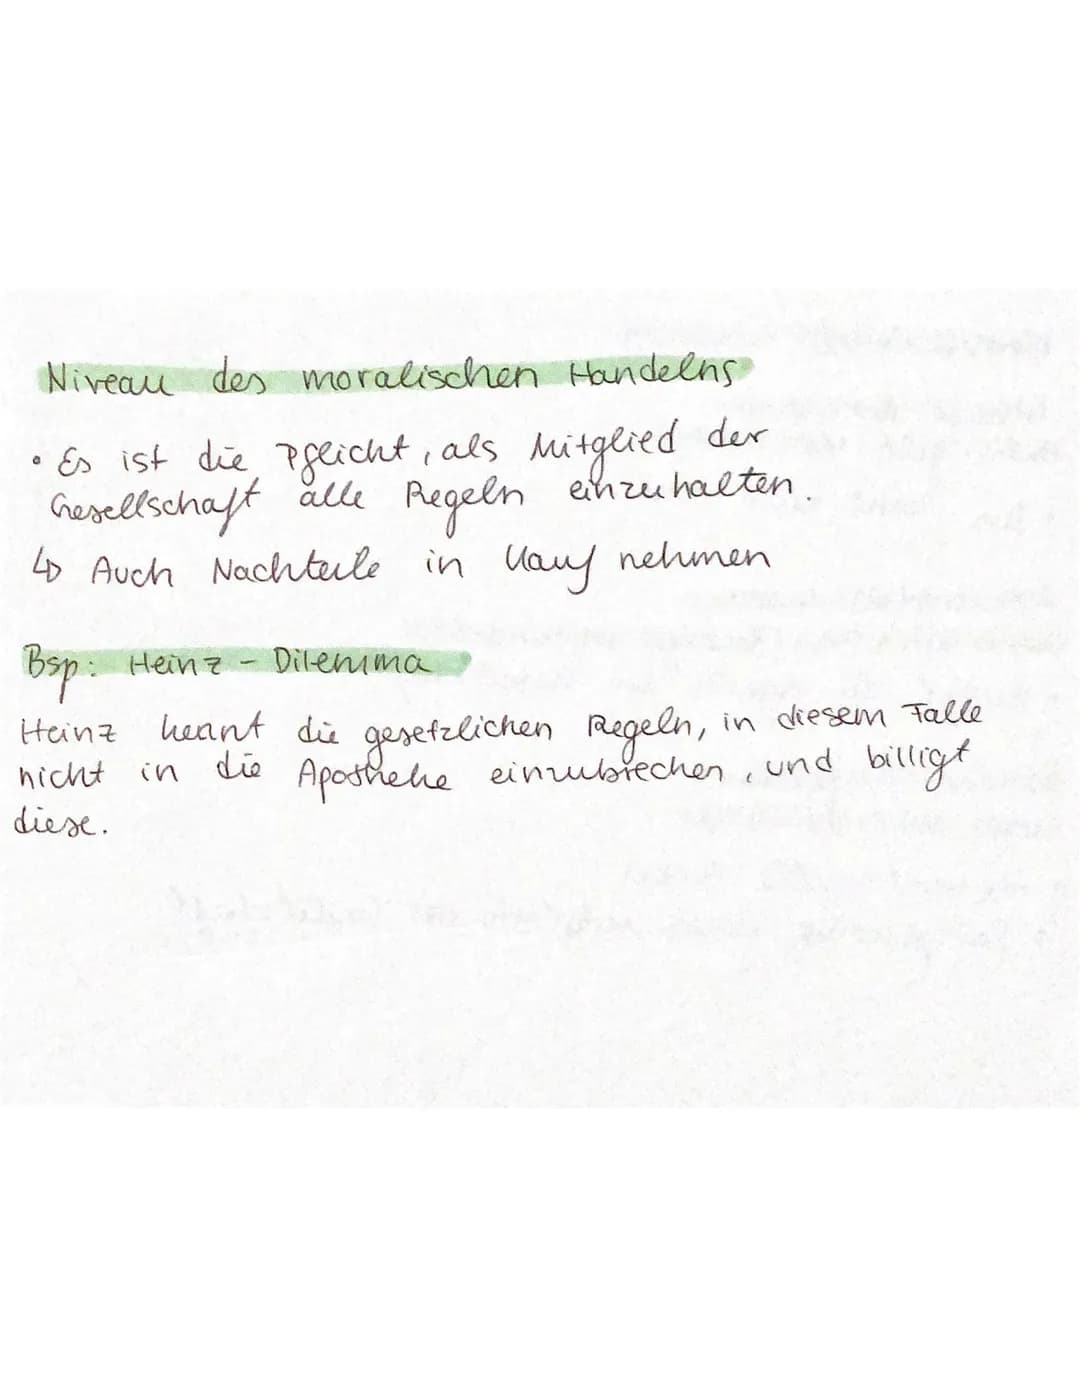 Niveau des moralischen Handelns
• Es ist die Pflicht, als Mitglied der
Gesellschaft alle Regeln einzuhalten.
↳ Auch Nachteile in Kauf nehmen
Bsp: Heinz - Dilemma
Heinz kennt die gesetzlichen Regeln, in diesem Falle
nicht in die Apotheke einzubrechen, und billigt
diese.